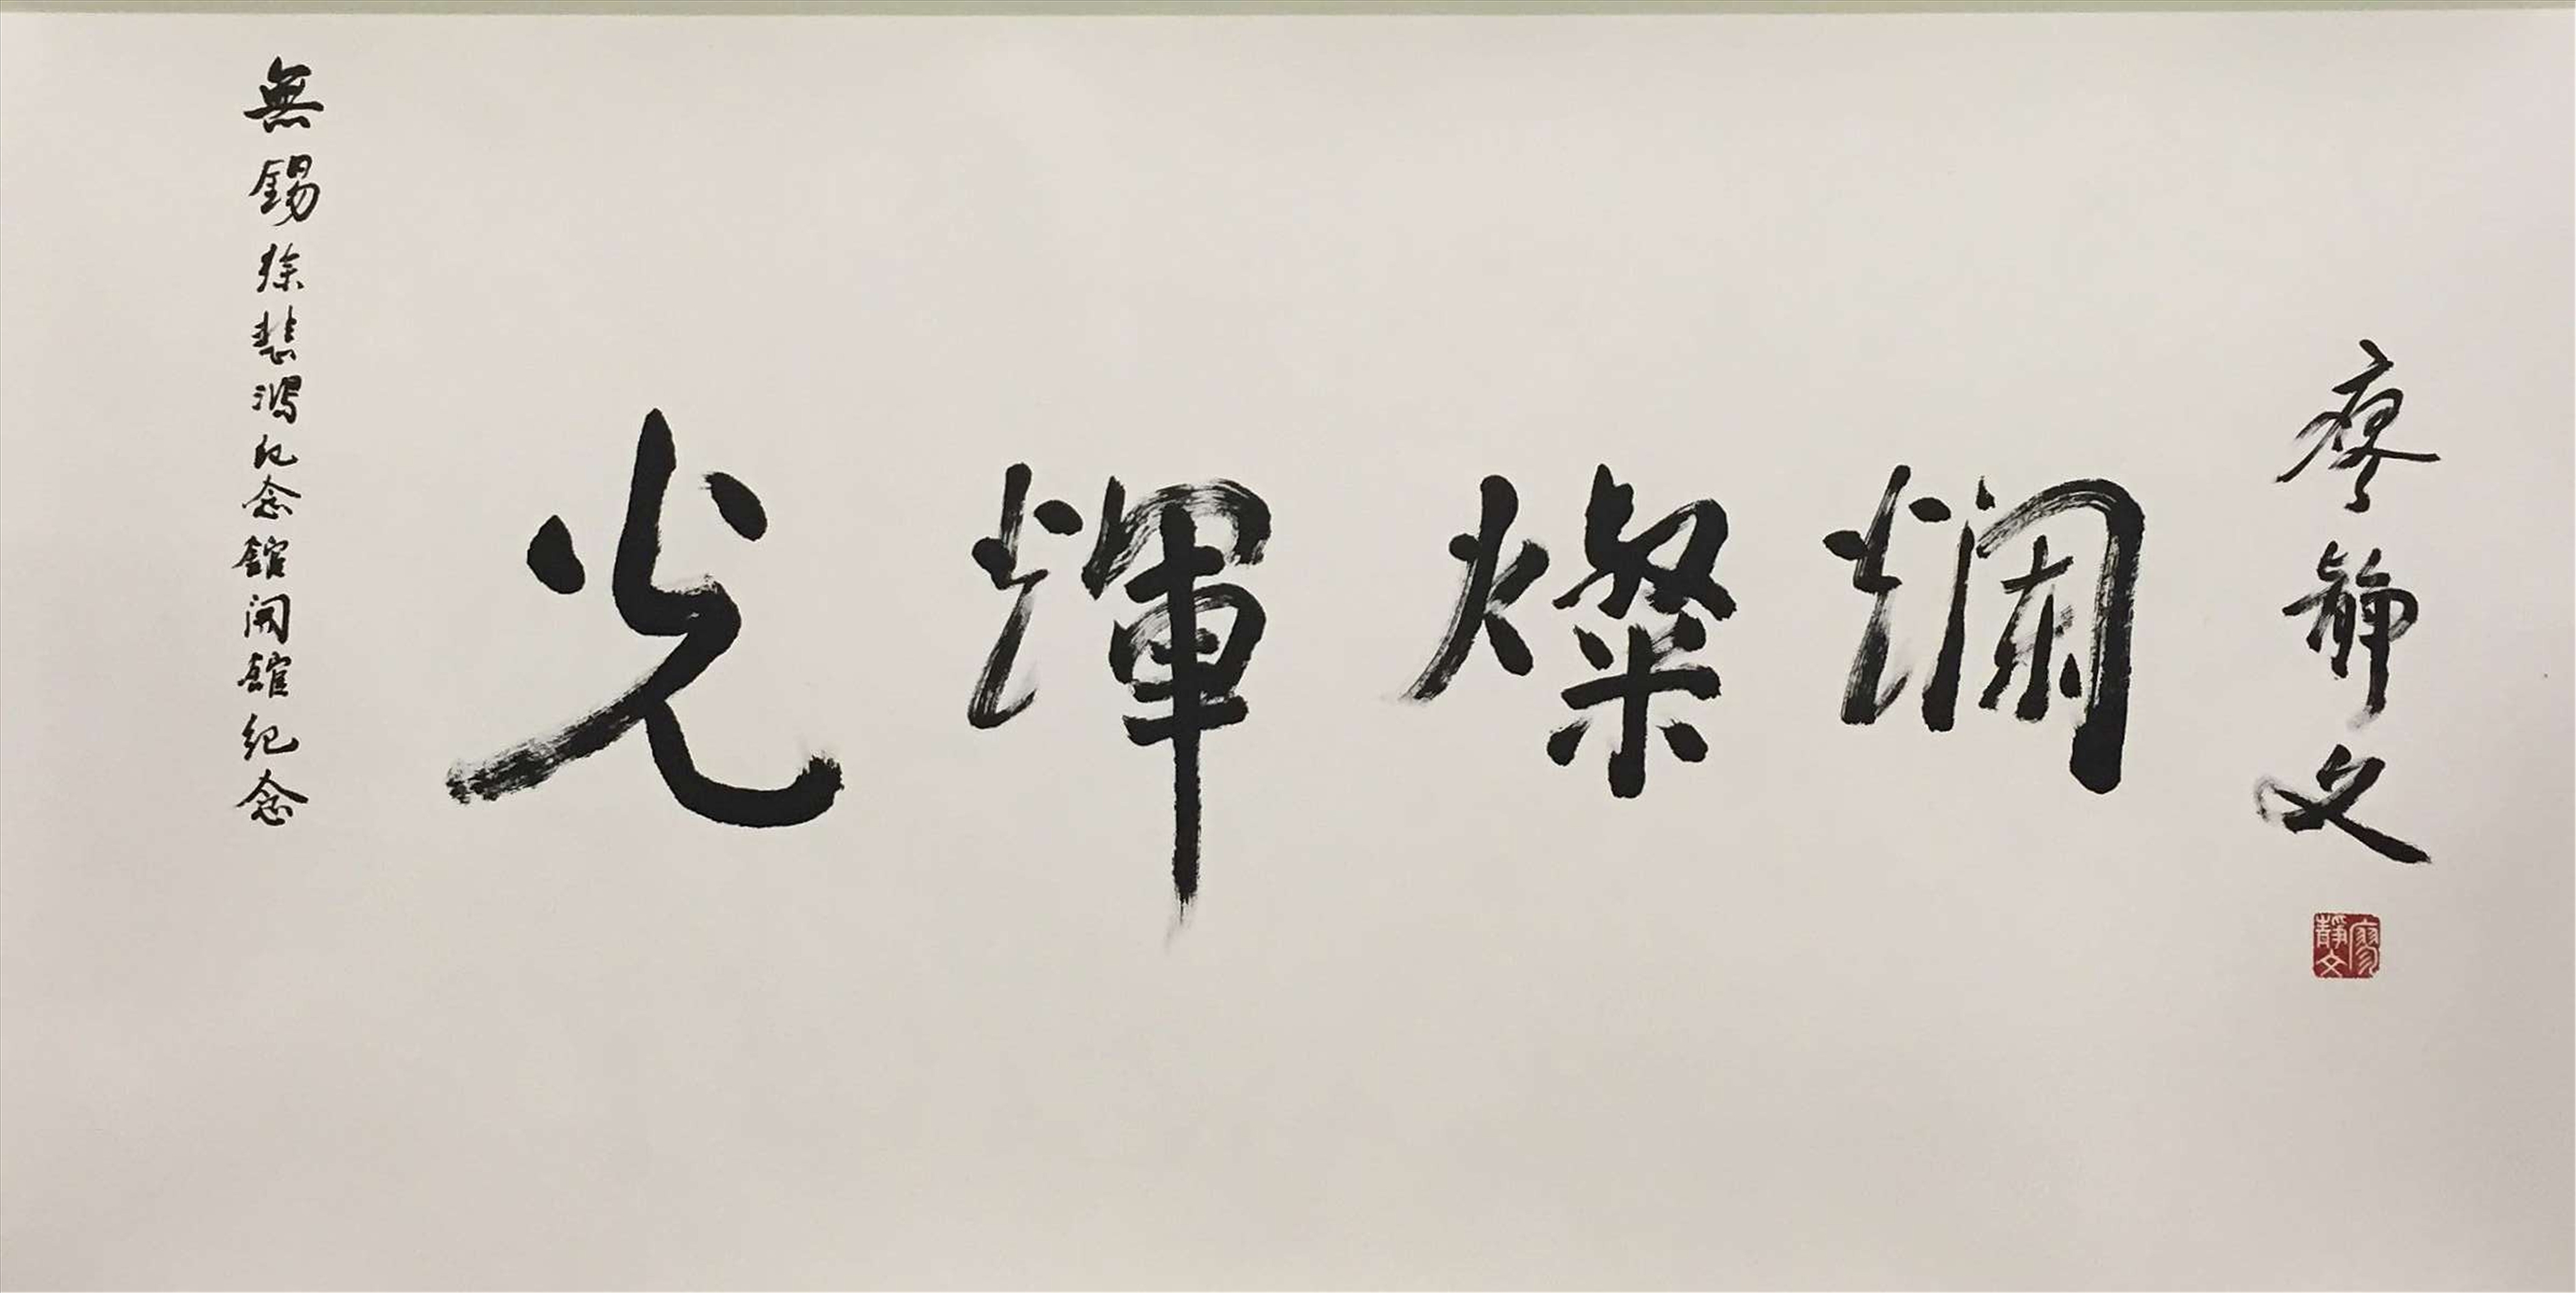 無錫徐悲鴻纪念館開館紀念
光輝燦爛
廖静文
廖靜文